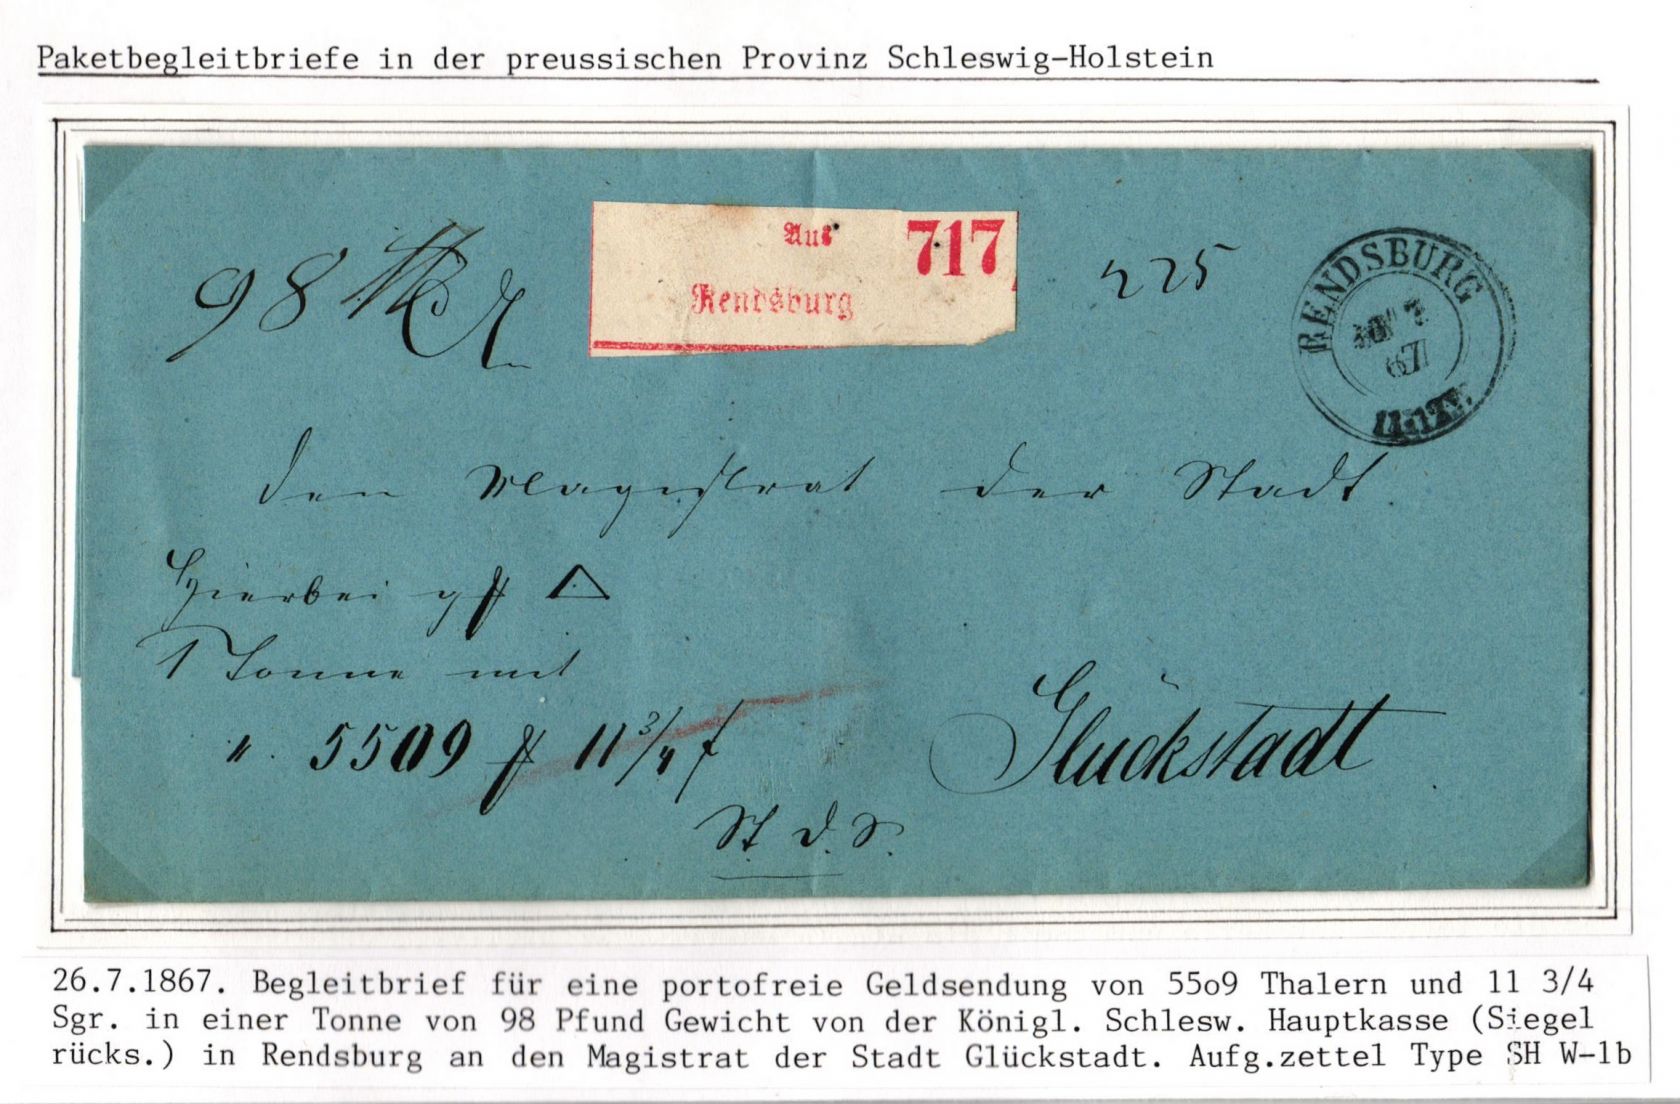 Paketbegleitbriefe in der preussischen Provinz Schleswig-Holstein
98
Aus 717
Rendsburg
225
RENDSBURG
67
den Magistrat der Stadt
Hierbei
1 Tonne mit
5509 11 3/4
Glückstadt
St. d. S.
26.7.1867. Begleitbrief für eine portofreie Geldsendung von 55o9 Thalern und 11 3/4
Sgr. in einer Tonne von 98 Pfund Gewicht von der Königl. Schlesw. Hauptkasse (Siegel
rücks.) in Rendsburg an den Magistrat der Stadt Glückstadt. Aufg.zettel Type SH W-1b